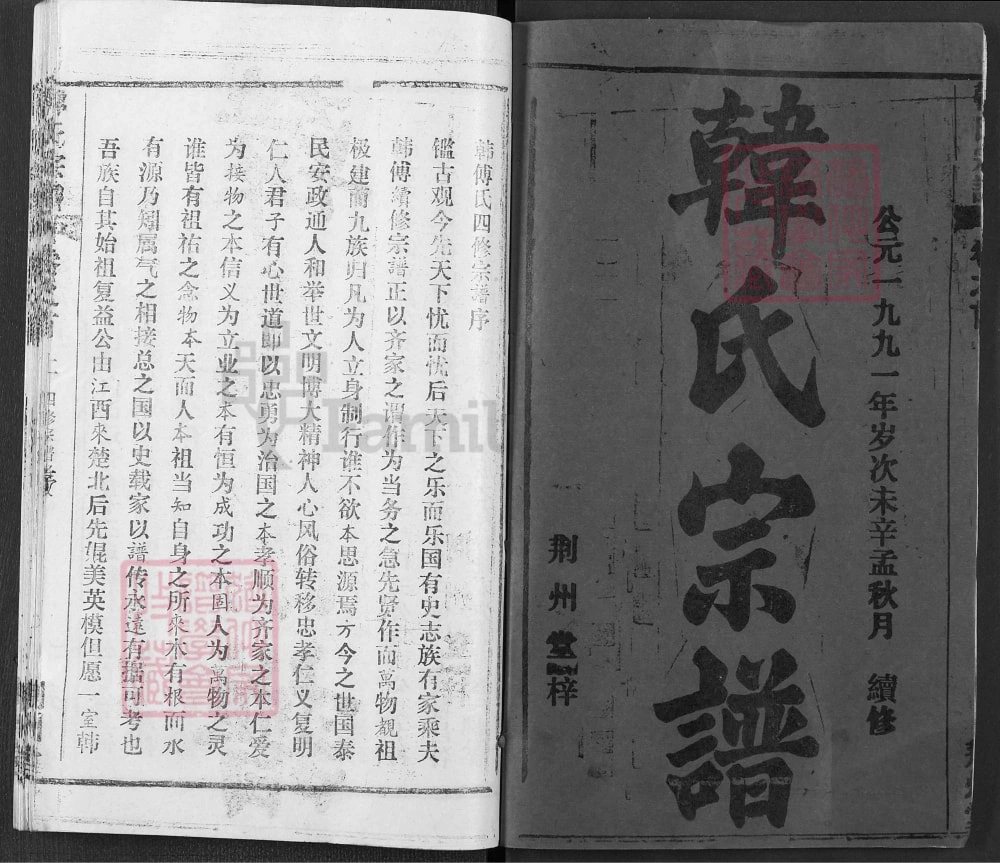 公元一九九一年岁次未辛孟秋月 續修
韓氏宗譜
荆州堂梓
韩傅氏四修宗譜序
鑑古观今先天下忧而忧后天下之乐而乐国有史志族有家乘夫
韩傅續修宗譜正以齐家之谓作为当务之急先贤作而萬物覩祖
极建而九族归凡为人立身制行谁不欲本思源焉方今之世国泰
民安政通人和举世文明博大精神人心风俗转移忠孝仁义复明
仁人君子有心世道即以忠勇为治国之本孝顺为齐家之本仁爱
为接物之本信义为立业之本有恒为成功之本固人为萬物之灵
谁皆有祖祐之念物本天而人本祖当知自身之所來木有根而水
有源乃知属气之相接总之国以史载家以譜传永遠有据可考也
吾族自其始祖复益公由江西來楚北后先焜美英模但愿一室韩
四修宗譜